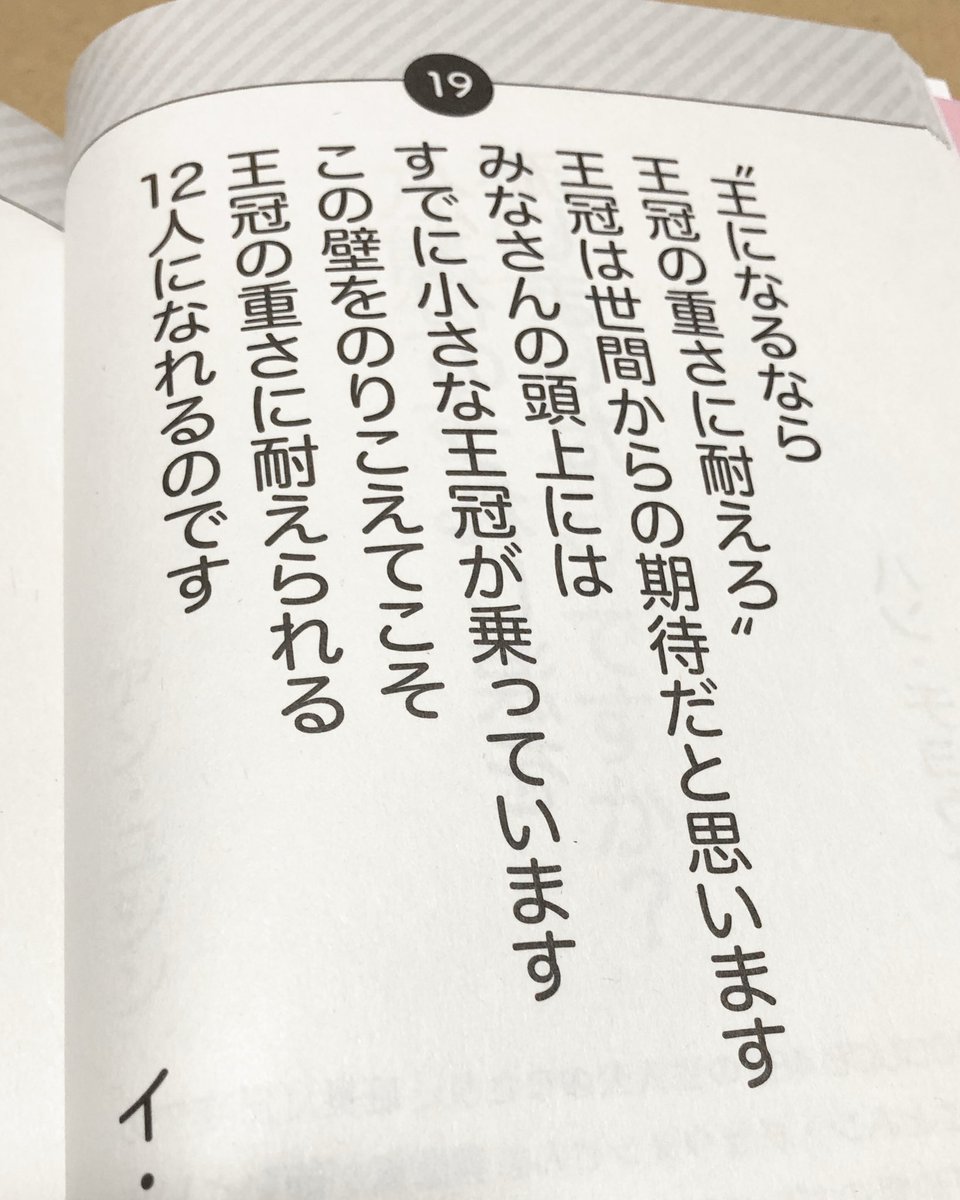 19
〝王になるなら
王冠の重さに耐えろ〟
王冠は世間からの期待だと思います
みなさんの頭上には
すでに小さな王冠が乗っています
この壁をのりこえてこそ
王冠の重さに耐えられる
12人になれるのです
イ・